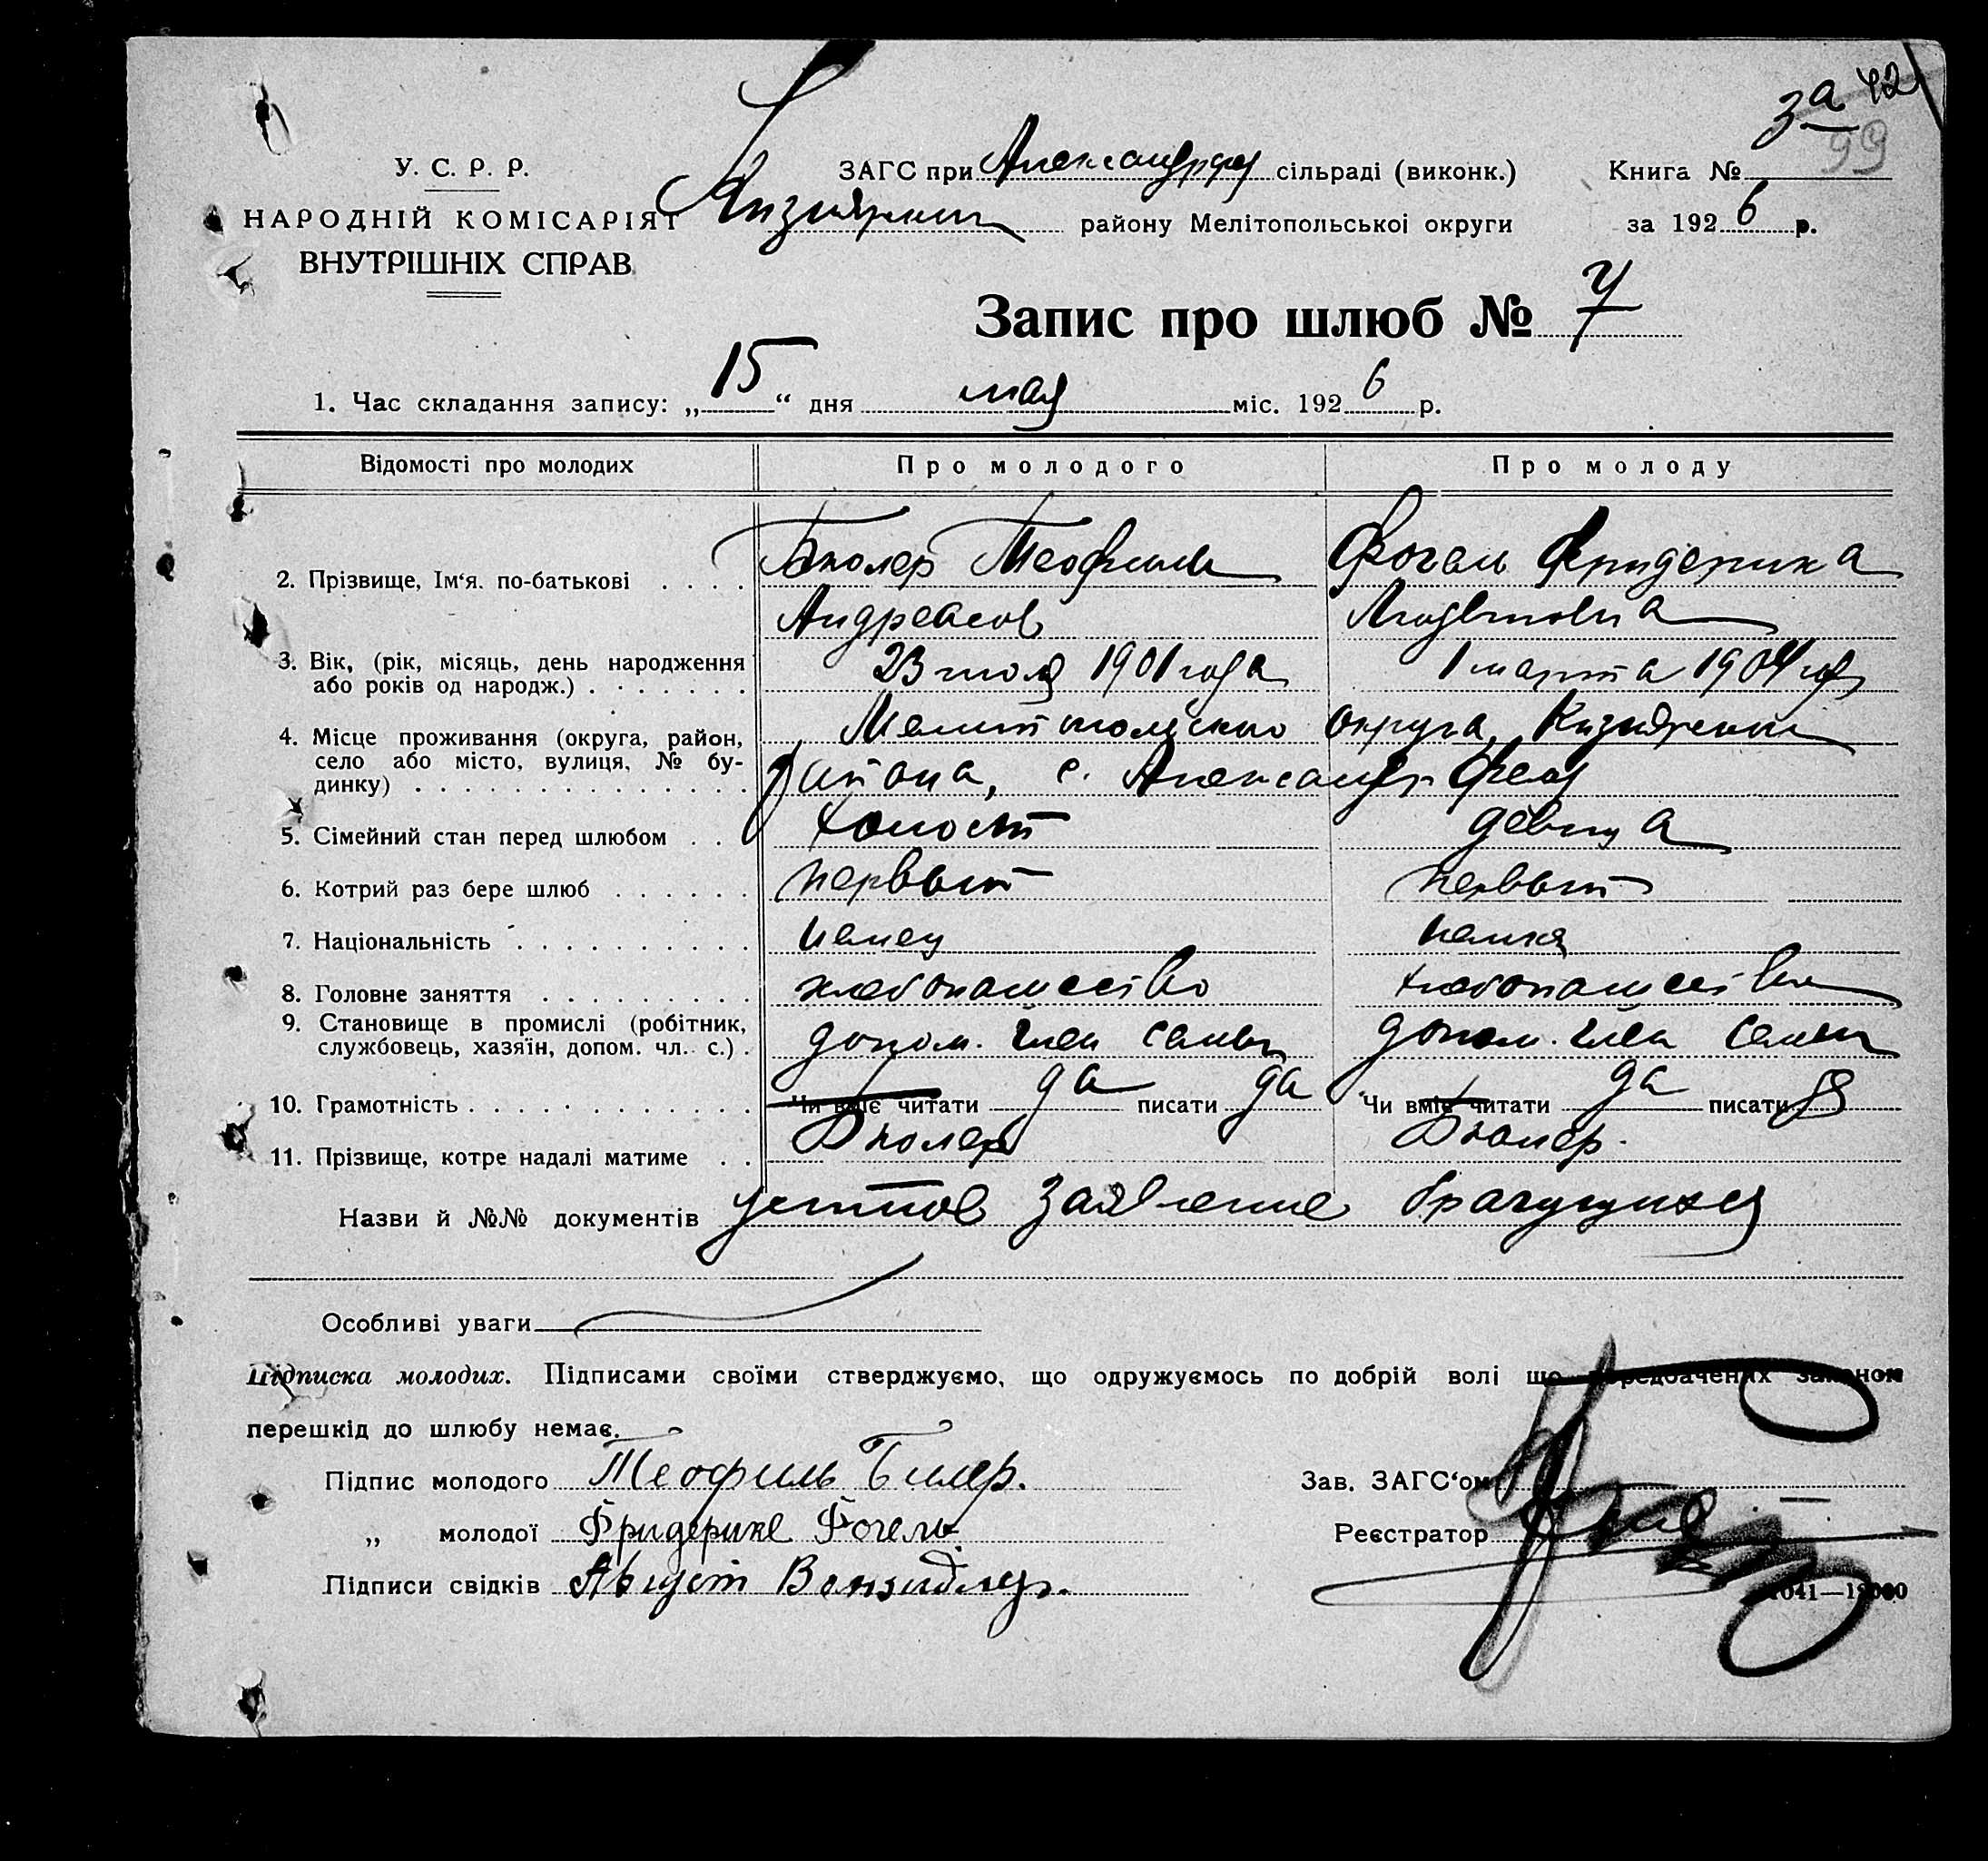 за 42
99
У. С. Р. Р.
ЗАГС при Александрфел сільраді (виконк.)
Книга №
НАРОДНІЙ КОМІСАРІЯТ
района Мелітопольської округи
за 1926 р.
ВНУТРІШНІХ СПРАВ
Запис про шлюб № 7
1. Час складання запису: „15“ дня мая міс. 1926 р.
Відомості про молодих
Про молодого
Про молоду
2. Прізвище, Ім‘я. по-батькові . . . . Бюлер Теофиль Фогель Фридерика
Андреасов Людвиговна
3. Вік, (рік, місяць, день народження
або років од народж.) . . . . . . . 23 июля 1901 года 1 марта 1904 год
4. Місце проживання (округа, район,
село або місто, вулиця, № бу-
динку) . . . . . . . . . . . . . .
Мелитопольского округа,
района, с. Александрфельд
5. Сімейний стан перед шлюбом . . . холост девица
6. Котрий раз бере шлюб . . . . . . первый первый
7. Національність . . . . . . . . . . немец немка
8. Головне заняття . . . . . . . . . хлебопашество хлебопашество
9. Становище в промислі (робітник,
службовець, хазяїн, допом. чл. с.) . допом. член семьи допом. член семьи
10. Грамотність . . . . . . . . . . . . Чи вміє читати да писати да Чи вміє читати да писати да
11. Прізвище, котре надалі матиме . . Бюлер Бюлер.
Назви й №№ документів заявление брачущихся
Особливі уваги
Підписка молодих. Підписами своїми стверджуємо, що одружуємось по добрій волі що передбачених законом
перешкід до шлюбу немає.
Підпис молодого Теофиль Билер.
Зав. ЗАГС‘ом
„ молодої Фридерике Фогель
Реєстратор
Підписи свідків Август
1041—12000